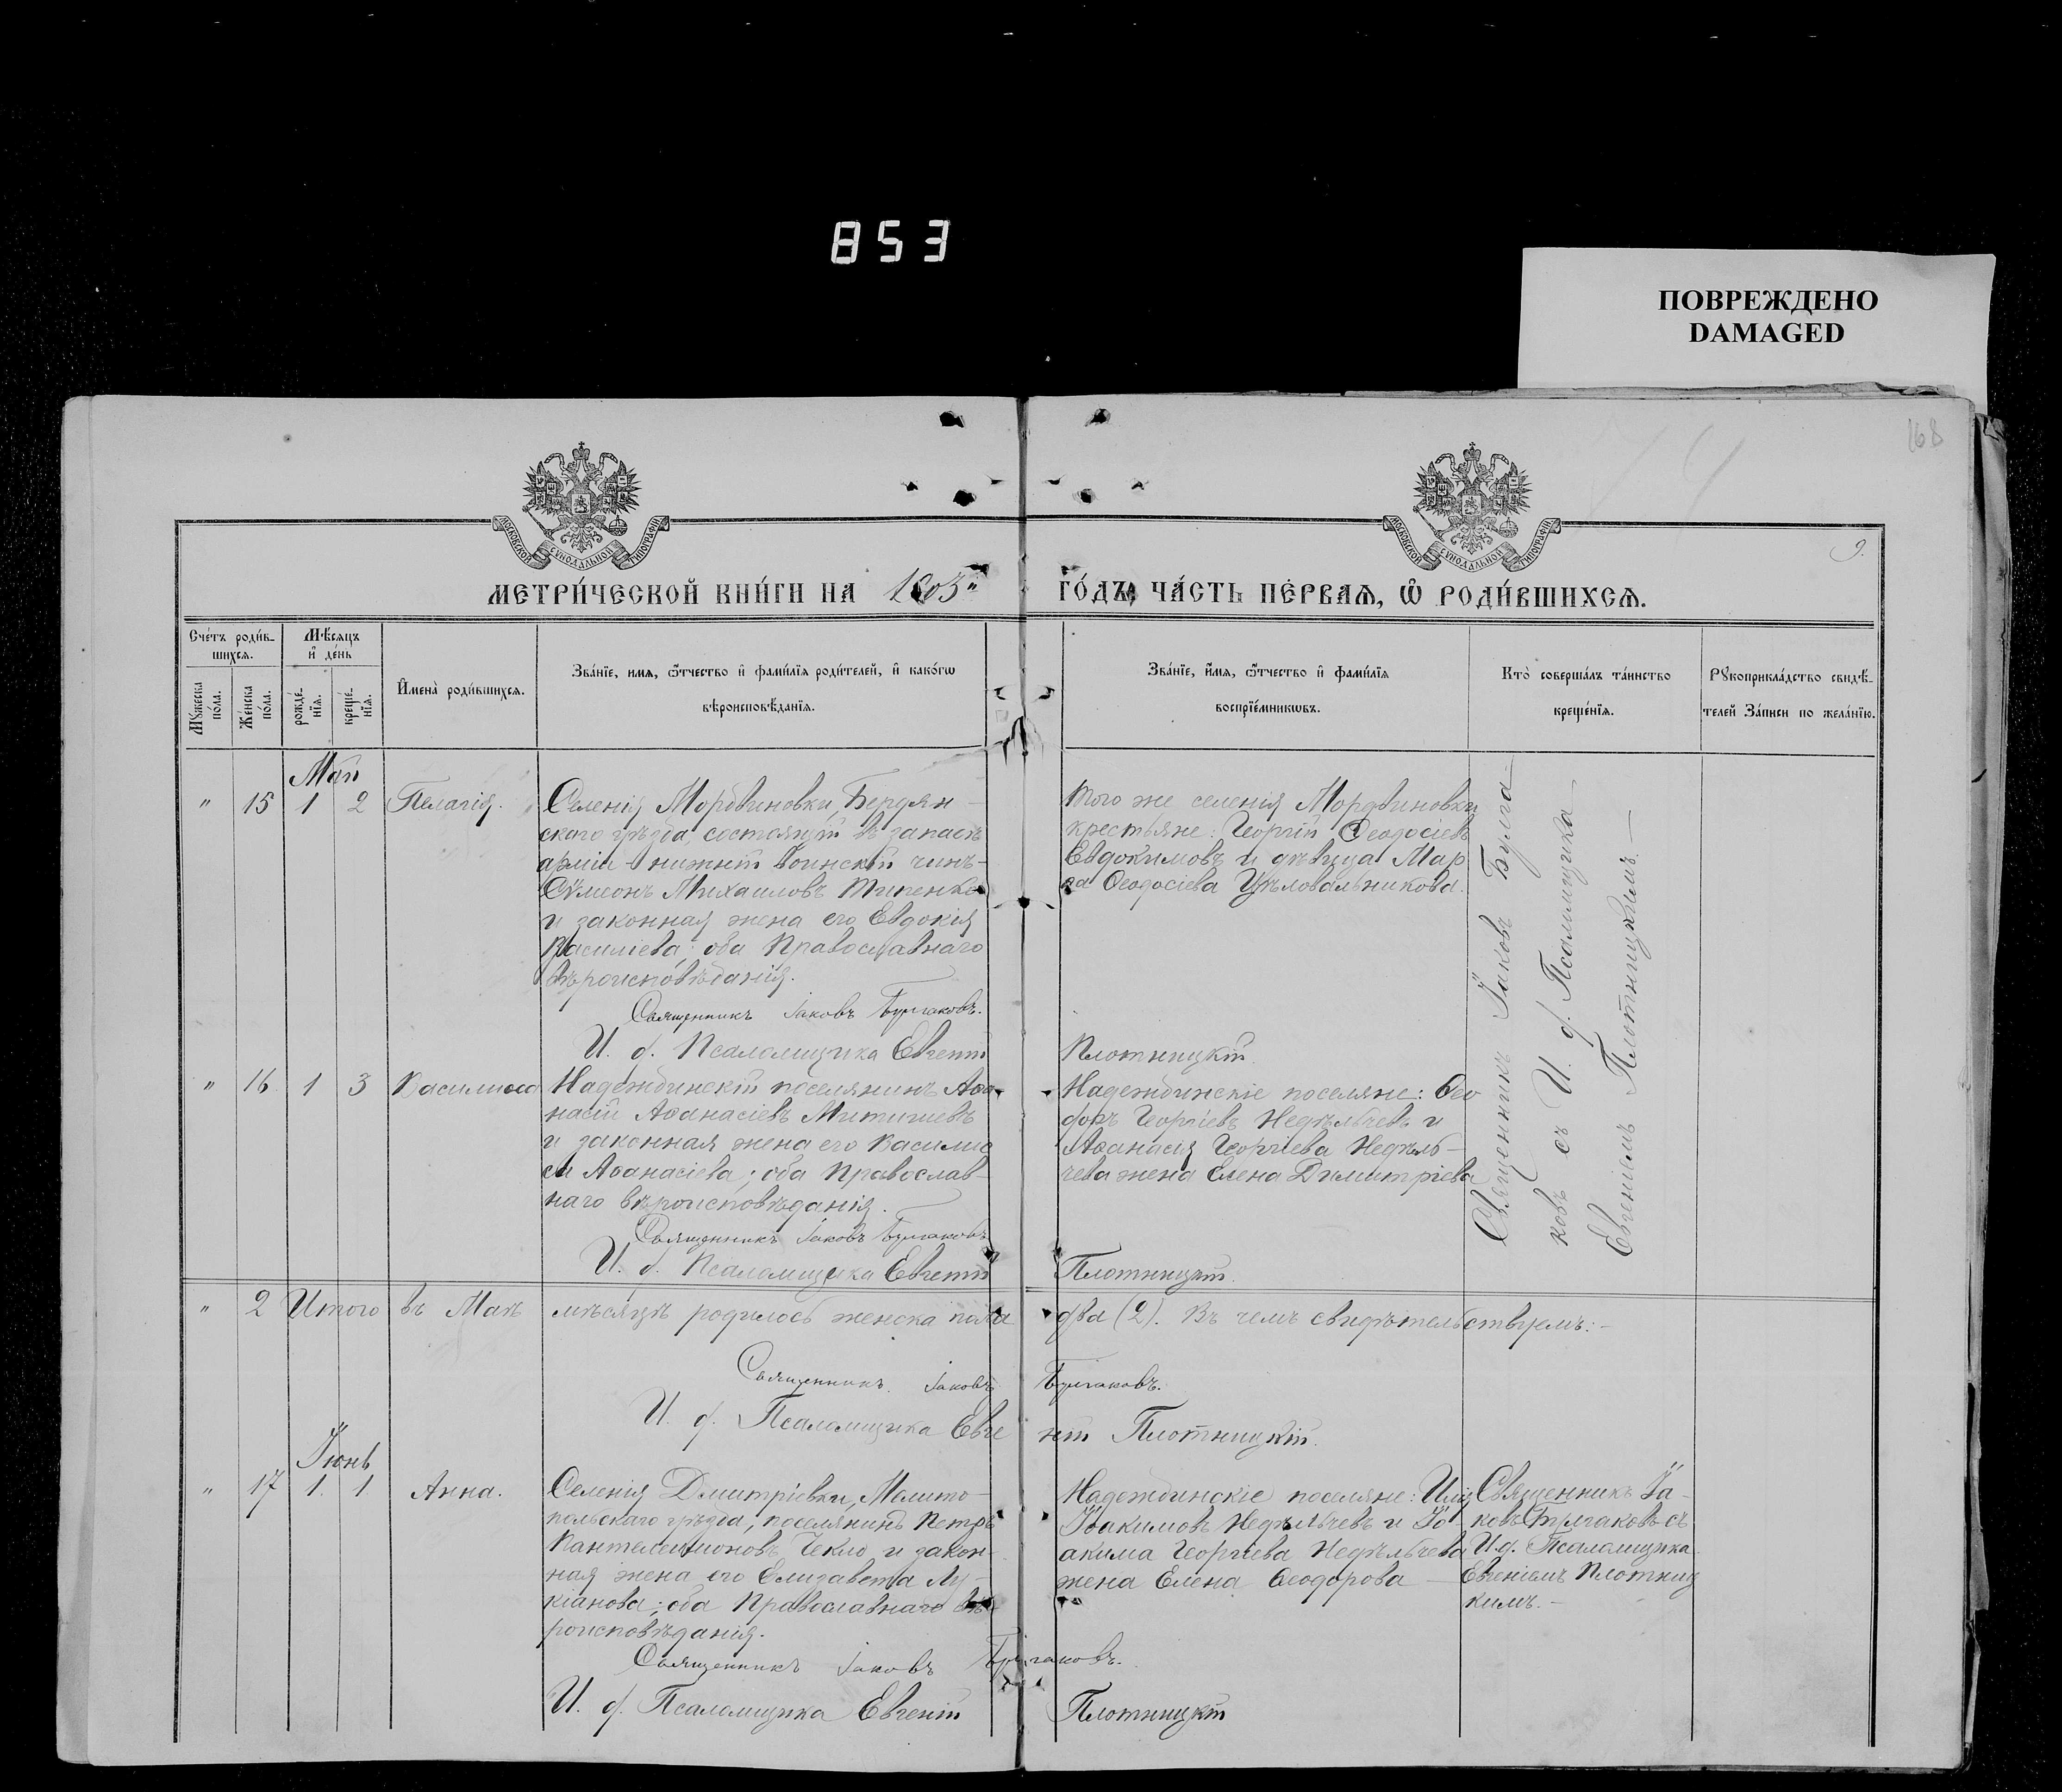 853
ПОВРЕЖДЕНО
DAMAGED
168
9.
МОСКОВСКОЙ СѴНОДАЛЬНОЙ ТИПОГРАФІИ
МОСКОВСКОЙ СѴНОДАЛЬНОЙ ТИПОГРАФІИ
МЕТРИ́ЧЕСКОЙ КНИ́ГИ НА 1903
ГО́ДЪ, ЧА́СТЬ ПЕ́РВАѦ, Ѡ҆ РОДИ́ВШИХСѦ.
Сче́тъ роди́в-
шихсѧ.
Мѣ́сѧцъ
и҆ де́нь
Мꙋ́жеска
по́ла.
Же́нска
по́ла.
рожде́-
нїѧ.
креще́-
нїѧ.
И҆мена̀ роди́вшихсѧ.
Зва́нїе, имѧ, ѻ҆́тчество и҆ фами́лїѧ роди́телей, и҆ како́гѡ
вѣроисповѣ́данїѧ.
Зва́нїе, и҆́мѧ, ѻ҆́тчество и҆ фами́лїѧ
воспрїе́мникѡвъ.
Кто̀ соверша́лъ та́инство
креще́нїѧ.
Рꙋкоприкла́дство свидѣ́-
телей За́писи по жела́нїю.
Май
" 15 1 2 Пелагія.
Селенія Мордвиновки, Бердян-
скаго уѣзда, состоящій въ запасѣ
арміи нижній воинскій чинъ-
Сѵмеонъ Михаиловъ Типенко
и законная жена его Евдокія
Василіева; оба Православнаго
вѣроисповѣданія.
Священникъ Іаковъ Булгаковъ.
И. д. Псаломщика Евгеній
Того же селенія Мордвиновки
крестьяне: Георгій Ѳеодосіевъ
Евдокимовъ и дѣвица Мар
ѳа Ѳеодосіева Цѣловальникова.
Плотницкій.
Священникъ Іаковъ Булга-
ковъ съ И. д. Псаломщика
Евгеніемъ Плотницкимъ. —
" 16 1 3 Василисса
Надеждинскій поселянинъ Аѳа-
насій Аѳанасіевъ Митишевъ
и законная жена его Василис
са Аѳанасіева; оба Православ-
наго вѣроисповѣданія.
Священникъ Іаковъ Булгаковъ
И. д. Псаломщика Евгеній
Надеждинскіе поселяне: Ѳео
доръ Георгіевъ Недѣльчевъ и
Аѳанасія Георгіева Недѣль-
чева жена Елена Димитріева
Плотницкій.
" 2 Итого въ Маѣ мѣсяцѣ родилось женска пола два (2). Въ чемъ свидѣтельствуемъ: -
Священникъ Іаковъ Булгаковъ.
И. д. Псаломщика Евгеній Плотницкій.
Іюнь
" 17 1. 1. Анна.
Селенія Дмитріевки, Мелито-
польскаго уѣзда, поселянинъ Петръ
Пантелеимоновъ Чекло и закон-
ная жена его Елизавета Лу-
кіанова; оба Православнаго вѣ-
роисповѣданія.
Священникъ Іаковъ Булгаковъ.
И. д. Псаломщика Евгеній
Надеждинскіе поселяне: Илія
Іоакимовъ Недѣльчевъ и Іо-
акима Георгіева Недѣльчева
жена Елена Ѳеодорова —
Плотницкій
Священникъ Іа-
ковъ Булгаковъ съ
И.д. Псаломщика
Евгеніемъ Плотниц
кимъ. -